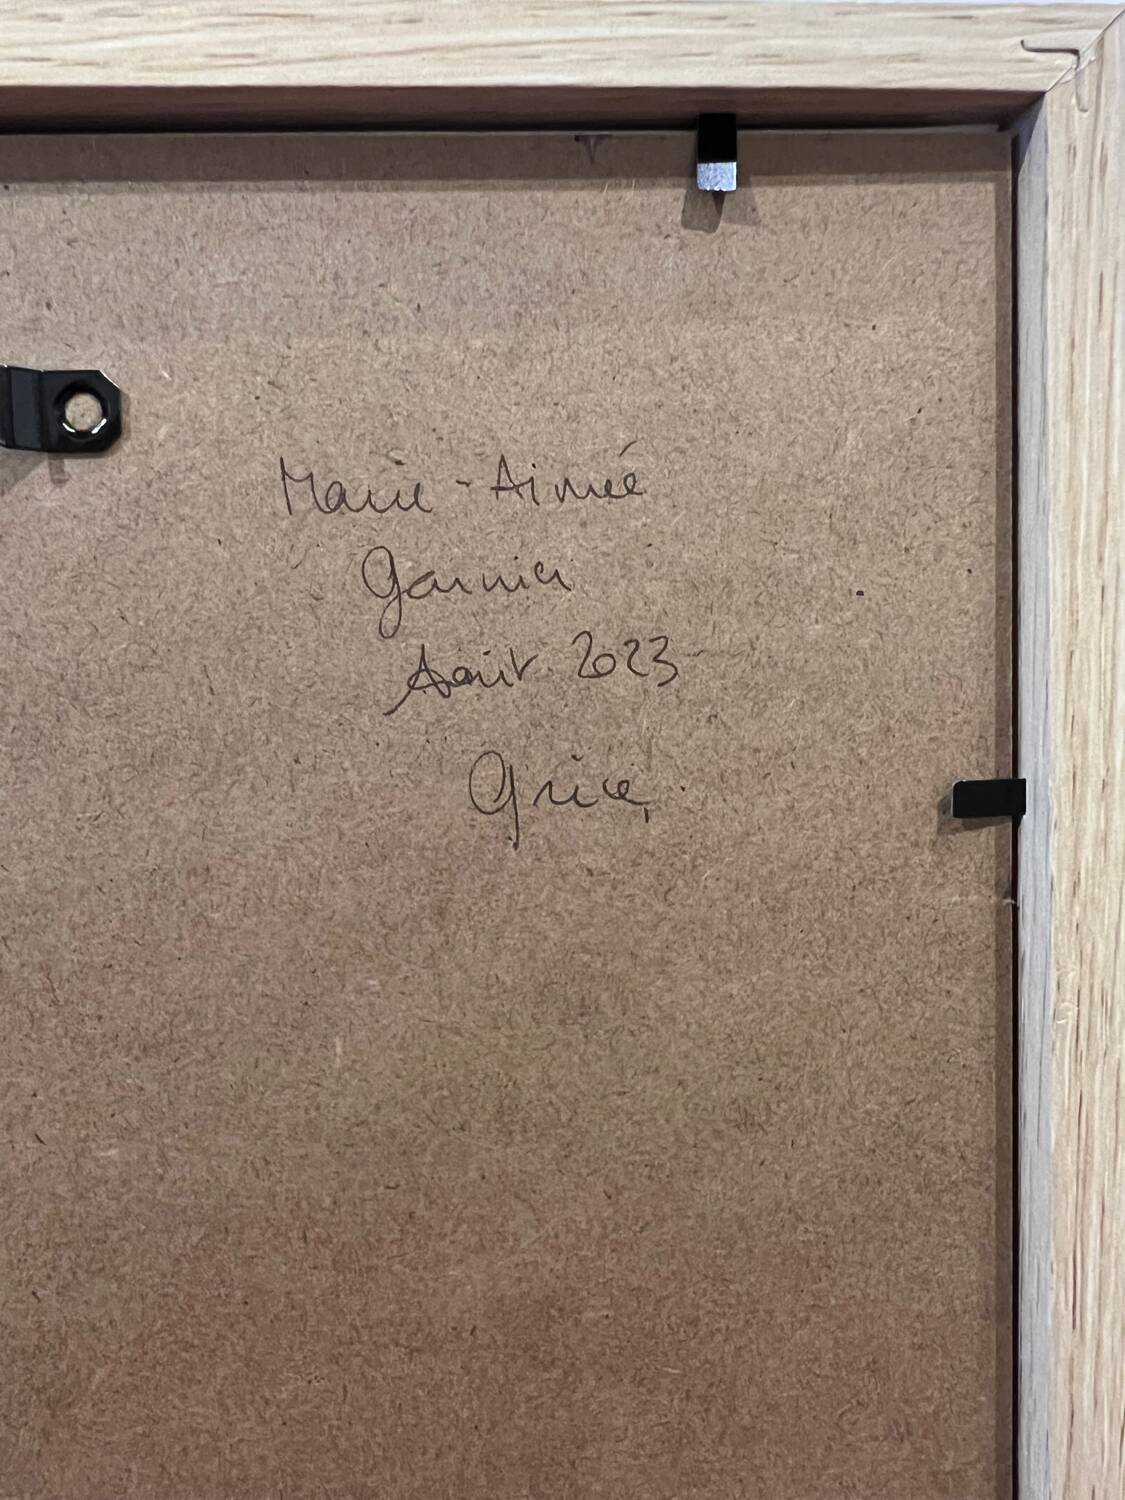 Marie-Aimée
Garnier
Août 2023